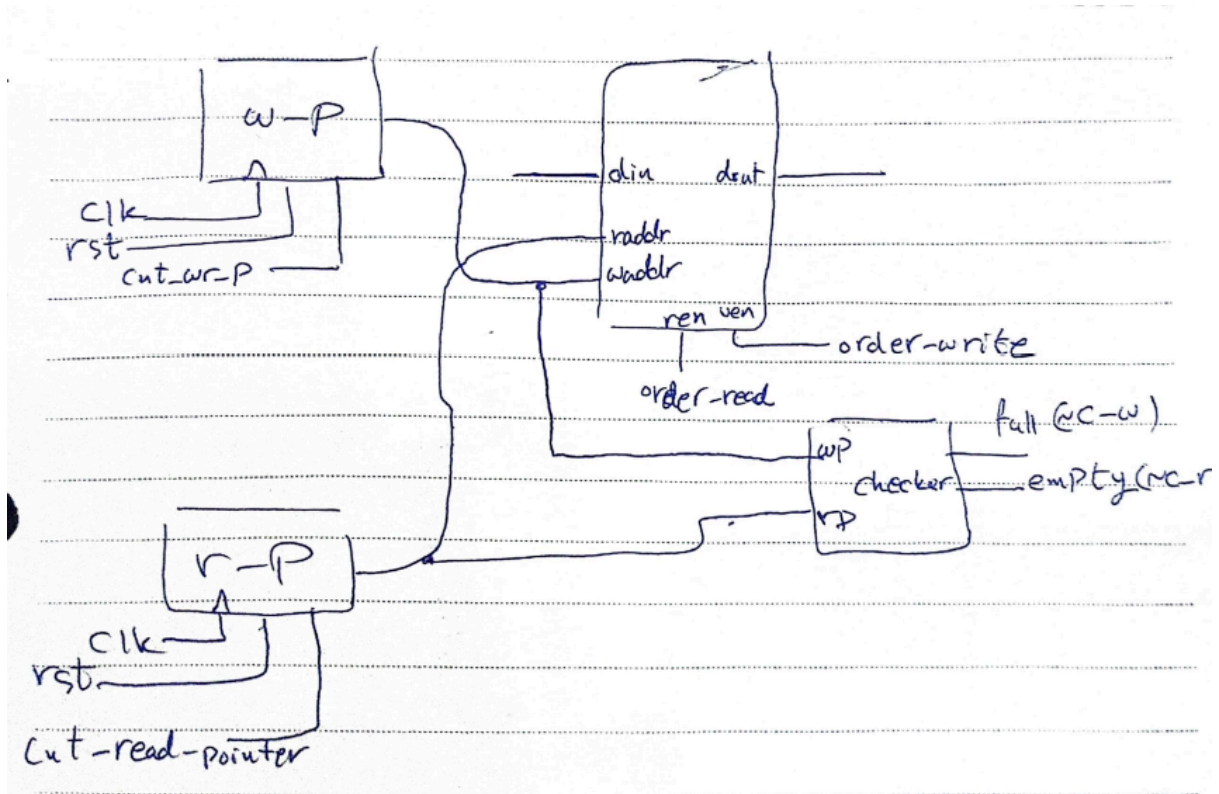 w-P
clk
rst
cnt_wr-P
din
dout
raddr
waddr
ren wen
order-write
order-read
full (~C-w)
wP
checker
empty (~c-r
rp
r-P
clk
rst
cnt-read-pointer